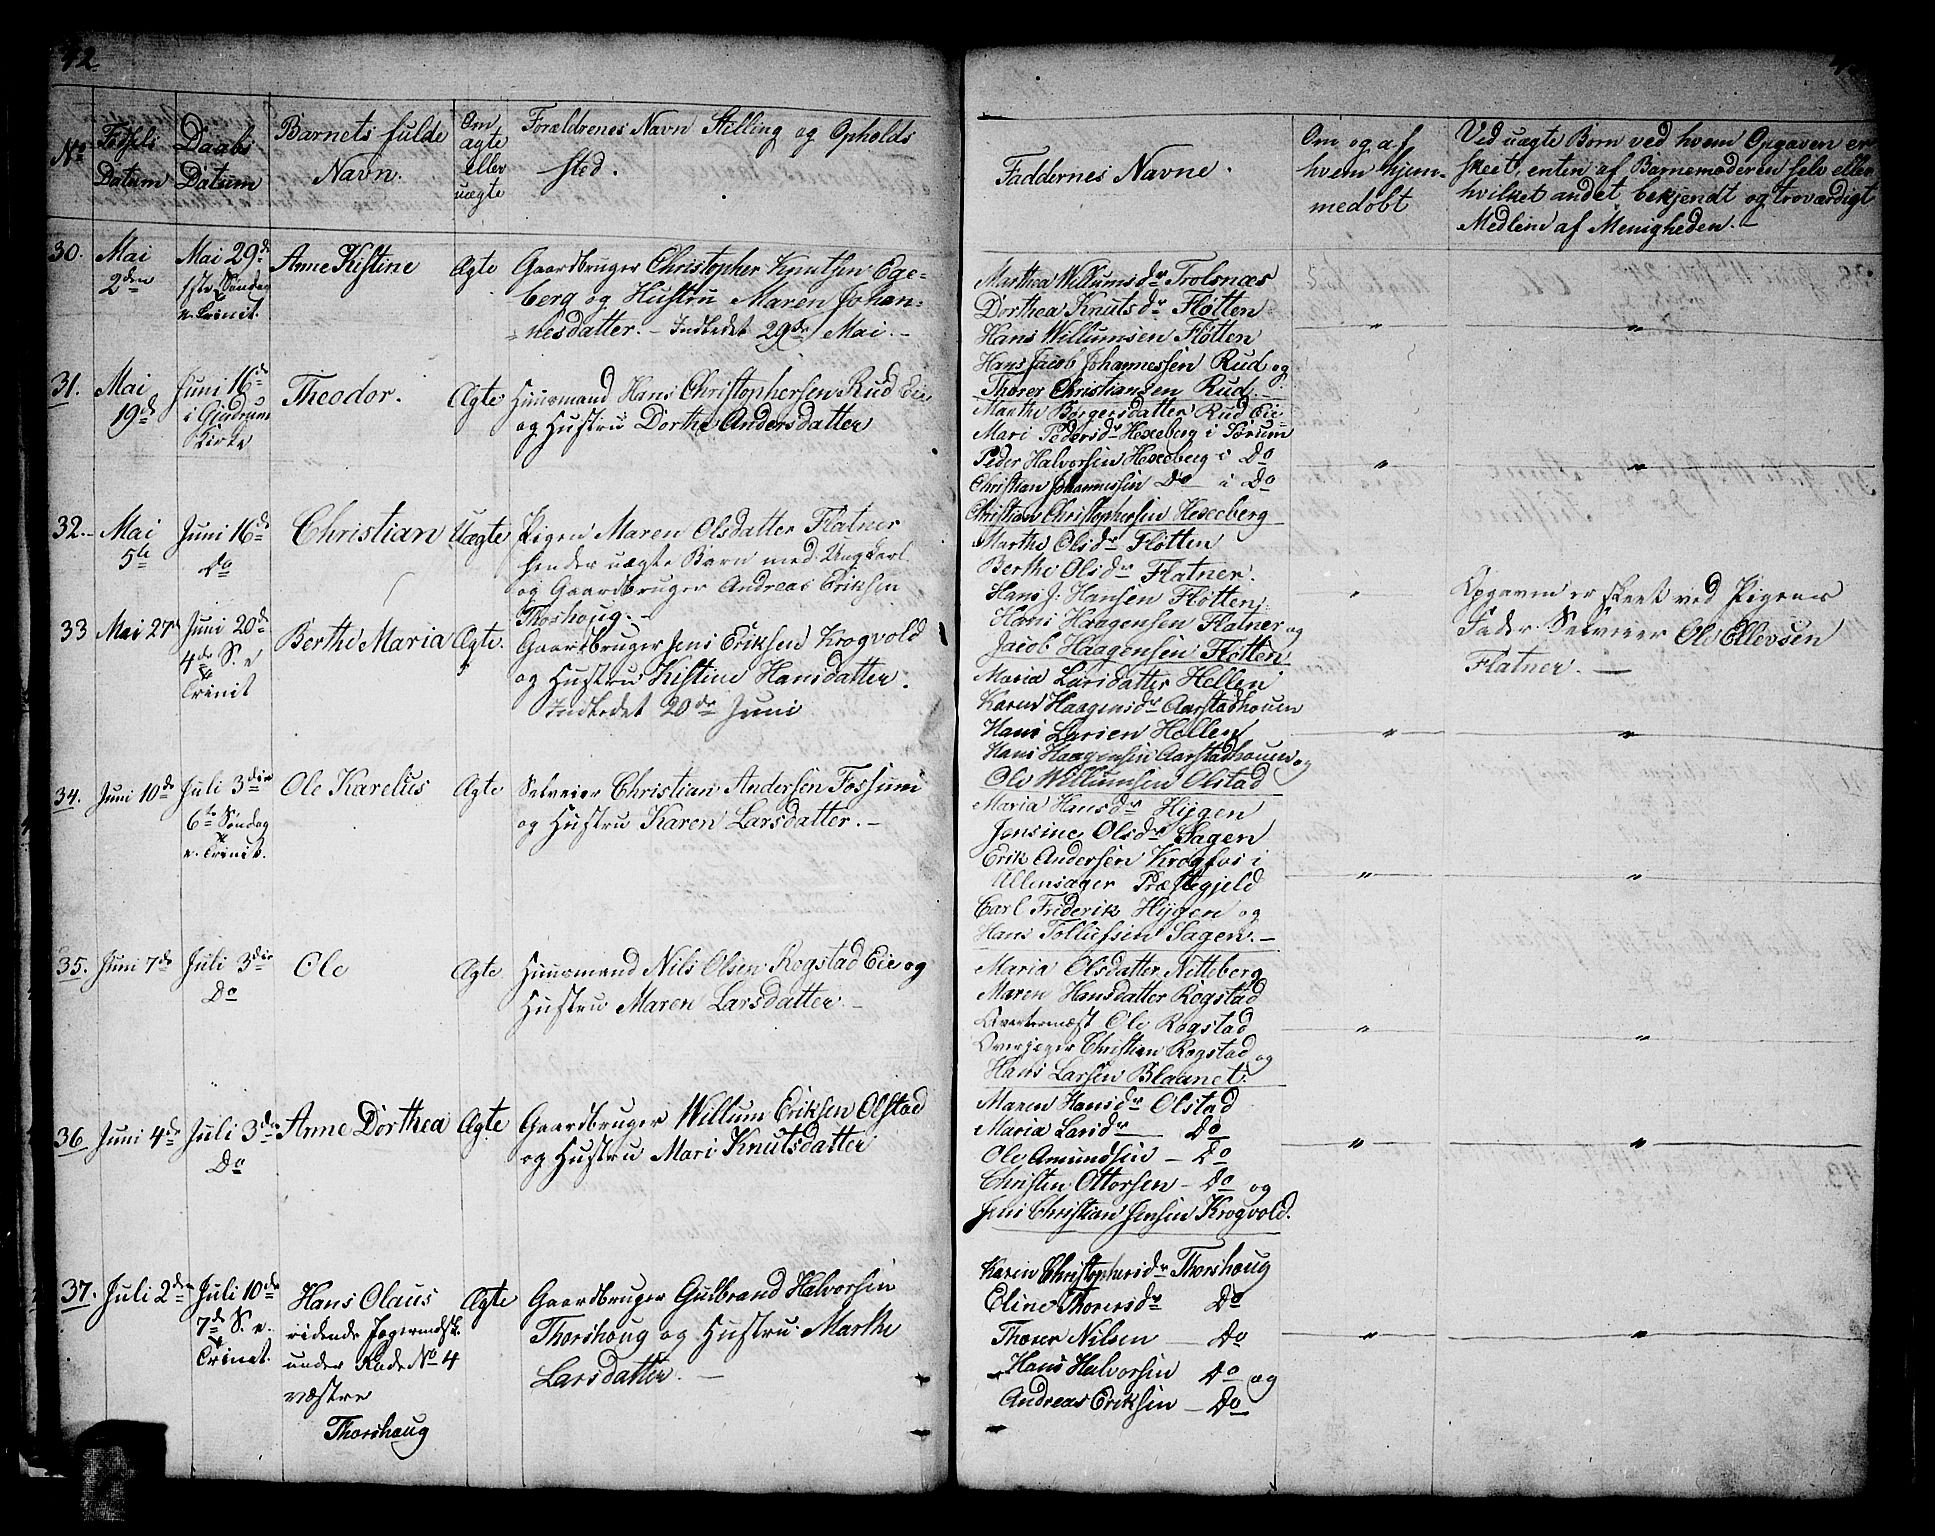 42
No
Fødsels
Datum
Daabs
Datum
Barnets fulde
Navn.
Om
ægte
eller
uægte
Forældrenes Navn Stilling og Opholds
sted.
30.
Mai
2den
Mai 29de
1ste Søndag
e. Trinit.
Anne Kistine
Ægte
Gaardbruger Christopher Knutsen Ege-
berg og Hustru Maren Johan-
nesdatter. - Indledet 29de Mai. -
31.
Mai
19de
Juni 16de
i Gjedrum
Kirke
Theodor.
Ægte
Huusmand Hans Christophersen Rud Eie
og Hustru Dorthe Andersdatter
32.
Mai
5te
Juni 16de
Do
Christian
Uægte
Pigen Maren Olsdatter Flatner
hendes uægte Barn med Ungkarl
og Gaardbruger Andreas Eriksen
Thorshoug. -
33
Mai 27de
Juni 20de
4de S. e
Trinit
Berthe Maria
Ægte.
Gaardbruger Jens Eriksen Krogvold
og Hustru Kistine Hansdatter.
Indledet 20de Juni
34.
Juni 10de
Juli 3die
6te Søndag
e. Trinit.
Ole Karelius
Ægte
Selveier Christian Andersen Fossum
og Hustru Karen Larsdatter. -
35.
Juni 7de
Juli 3die
Do
Ole
Ægte.
Huusmand Nils Olsen Rogstad Eie og
Hustru Maren Larsdatter. -
36.
Juni 4de
Juli 3die
Do
Anne Dorthea
Ægte
Gaardbruger Willum Eriksen Olstad
og Hustru Mari Knutsdatter
37.
Juli 2den
Juli 10de
7de S. e.
Trinit.
Hans Olaus
ridende Jægermdsk.
under Rode No 4
væstre
Thorshaug
Ægte
Gaardbruger Gulbrand Halvorsen
Thorshoug og Hustru Marthe
Larsdatter. -
Faddernes Navne.
Om og af
hvem hjem-
medøbt
Ved uægte Børn ved hvem Opgaven er
skeet, enten af Barnemoderen selv eller
hvilket andet bekjendt og troværdigt
Medlem af Menigheden. -
Marthea Willumsdr Trolsnæs
Dorthea Knutsdr Fløtten
Hans Willumsen Fløtten
Hans Jacob Johannessen Rud og
Thorer Christiansen Rud. -
Marthe Borgersdatter Rud Eie
Mari Pedersdr Hexeberg i Sørum
Peder Halvorsen Hexeberg i Do
Christian Johannessen Do i Do
Christian Christophersen Hexeberg
Marthe Olsdr Fløtten
Berthe Olsdr Flatner.
Hans J. Hansen Fløtten
Hans Haagensen Flatner og
Jacob Haagensen Fløtten
Opgaven er skeet ved Pigens
Fader Selveier Ole Ellevsen
Flatner. -
Maria Larsdatter Hellen
Karen Haagensdr Aarstadhouen
Hans Larsen Hellen
Hans Haagensen Aarstadhouen og
Ole Willumsen Olstad
Maria Hansdr Hygen
Jensine Olsdr Sagen
Erik Andersen Krogfos i
Ullensager Præstegjeld
Carl Friderik Hygen og
Hans Tollufsen Sagen. -
Maria Olsdatter Nitteberg
Maren Hansdatter Rogstad
Ole Rogstad
Overjæger Christian Rogstad og
Hans Larsen Blaanet.
Maren Hansdr Olstad
Maria Larsdr Do
Ole Amundsen - Do
Christen Ottersen - Do og
Jens Christian Jensen Krogvold.
Karen Christophersdr Thorshoug
Eline Thorersdr Do
Thorer Nilsen - Do
Hans Halvorsen Do og
Andreas Eriksen - Do